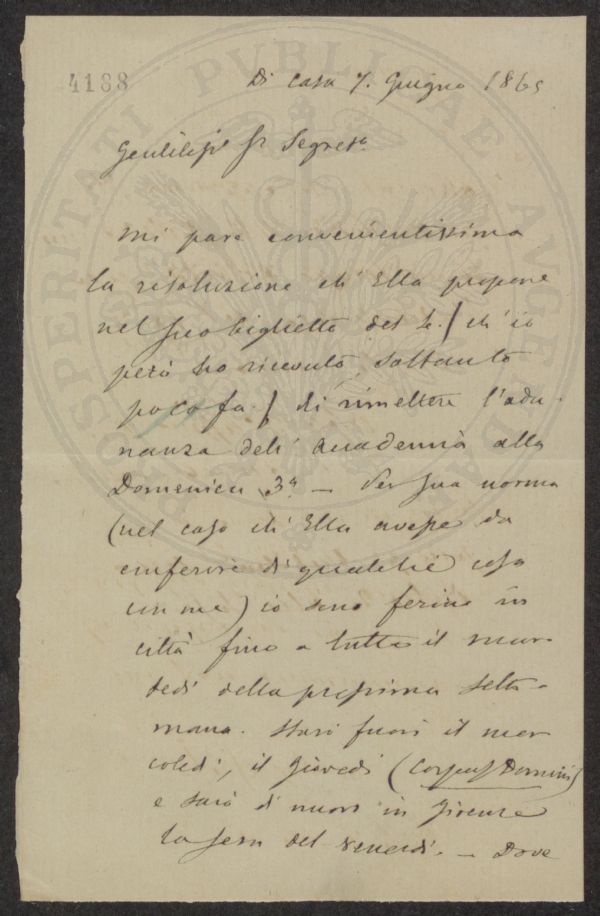 4188
Di casa 7. Giugno 1865
Gentiliss.º Sr. Segret.º
Mi pare convenientissima
la risoluzione ch'Ella propone
nel suo biglietto del 4. / ch'io
però ho ricevuto soltanto
poco fa. / di rimettere l'adu-
nanza dell'Accademia alla
Domenica 3.ª — Per sua norma
(nel caso ch'Ella avesse da
conferire di qualche cosa
con me) io sono fermo in
città fino a tutto il mar-
tedì della prossima setti-
mana. Starò fuori il mer-
coledì, il Giovedì (Corpus Domini)
e sarò di nuovo in Firenze
la sera del venerdì. — Dove
PROSPERITATI PUBLICAE AUGENDAE